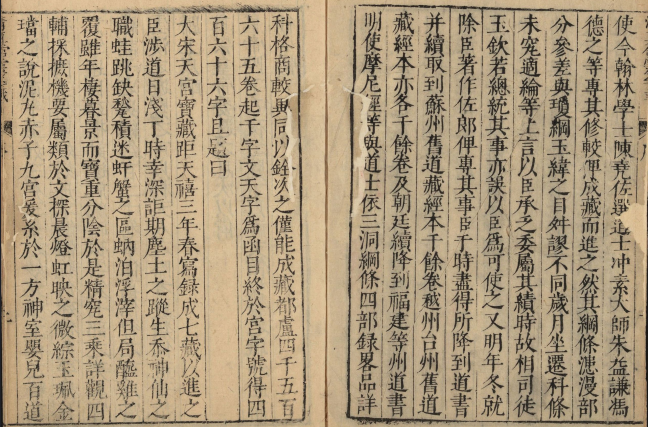 使今翰林學士陳堯佐選道士冲素大師朱益謙馮
德之等專其修較俾成藏而進之然其綱條漶漫部
分參差與瓊綱玉緯之目舛謬不同歲月坐遷科條
未究適綸等上言以臣承之委屬其績時故相司徒
王欽若總統其事亦誤以臣爲可使之又明年冬就
除臣著作佐郎俾專其事臣于時盡得所降到道書
并續取到蘇州舊道藏經本千餘卷越州台州舊道
藏經本亦各千餘卷及朝廷續降到福建等州道書
明使摩尼經等與道士依三洞綱條四部録畧品詳
科格商較異同以銓次之僅能成藏都盧四千五百
六十五卷起千字文天字爲函目終於宫字號得四
百六十六字且題曰
大宋天宫寶藏距天禧三年春寫録成七藏以進之
臣涉道日淺丁時幸深詎期塵土之蹤生忝神仙之
職蛙跳缺甃積迷虷蟹之區蚋泊浮滓但局醯雞之
覆雖年棲暮景而寶重分陰於是精究三乘詳觀四
輔採摭機要屬類於文探晨燈虹映之微綜玉珮金
璫之說泥丸赤子九宫爰系於一方神室嬰兒百道